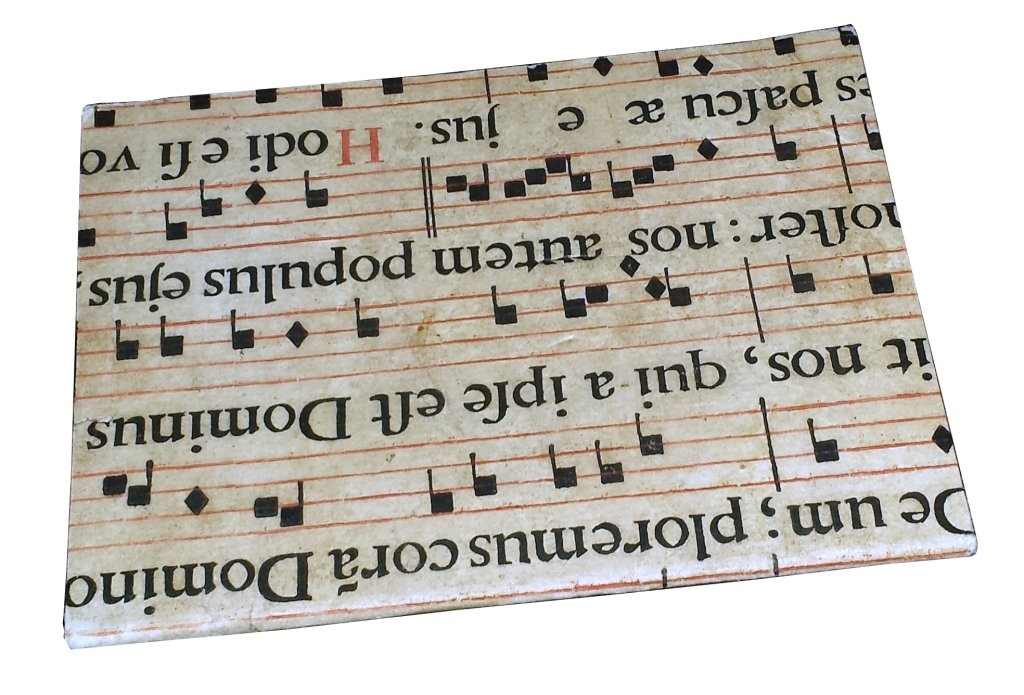 De um ; ploremus corã Domino
it nos, qui a ipſe eſt Dominus
noſter : nos autem populus ejus
es paſcu æ e jus : Hodi e ſi vo